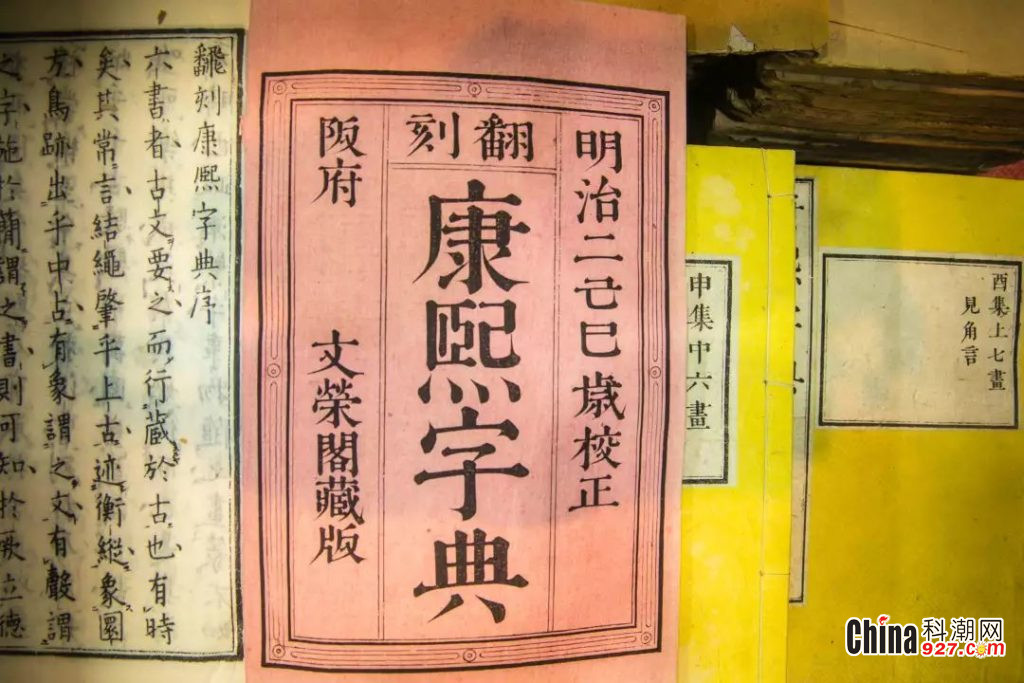 酉集上七畫
見角言
申集中六畫
明治二己巳歳校正
翻刻
康熙字典
阪府 文榮閣藏版
飜刻康熙字典序
六書者古文要之而行藏於古也有時
矣其常言結繩肇乎上古迹衡縱象圜
方鳥跡出乎中占有象謂之文有聲謂
之字施於簡謂之書則可知於厥立德
China科潮网
927.com